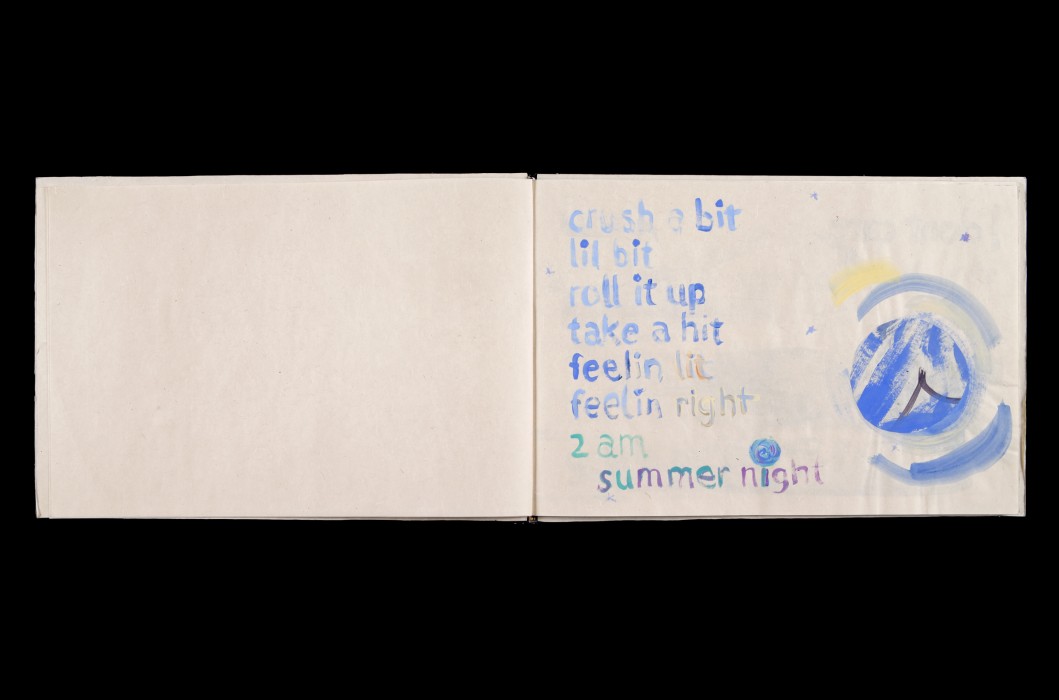 crush a bit
lil bit
roll it up
take a hit
feelin lit
feelin right
2 am
summer night